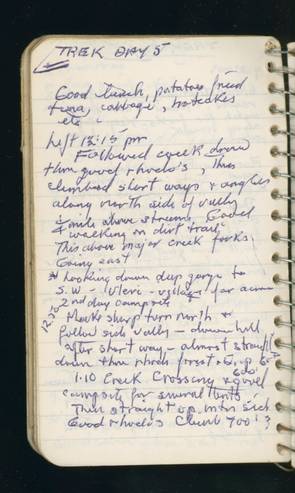 TREK DAY 5
Good lunch, potatoes fried
tuna, cabbage, hotcakes
etc.
Left 12:15 pm
Followed creek down
thru good rhodo's, then
climbed short ways & angles
along north side of valley
mile above stream. Good
walking on dirt trail.
This above major creek forks,
Going east
Looking down deep gorge to
S.W. - village far across
2nd day campsite
12:50
Make sharp turn north &
follow side valley - down hill
after short way - almost straight
down thru rhodo forest
600'
1:10 Creek Crossing & good
campsite for several tents
Then straight up mtn side
Good rhodos Climb 700'?